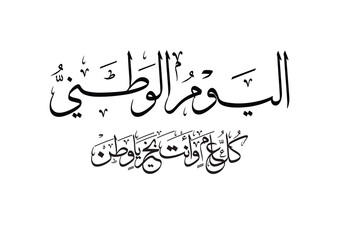 اليَومُ الوَطَنيُّ
كُلُّ عَامٍ وَأَنتَ بِخَيرٍ يَا وَطَن